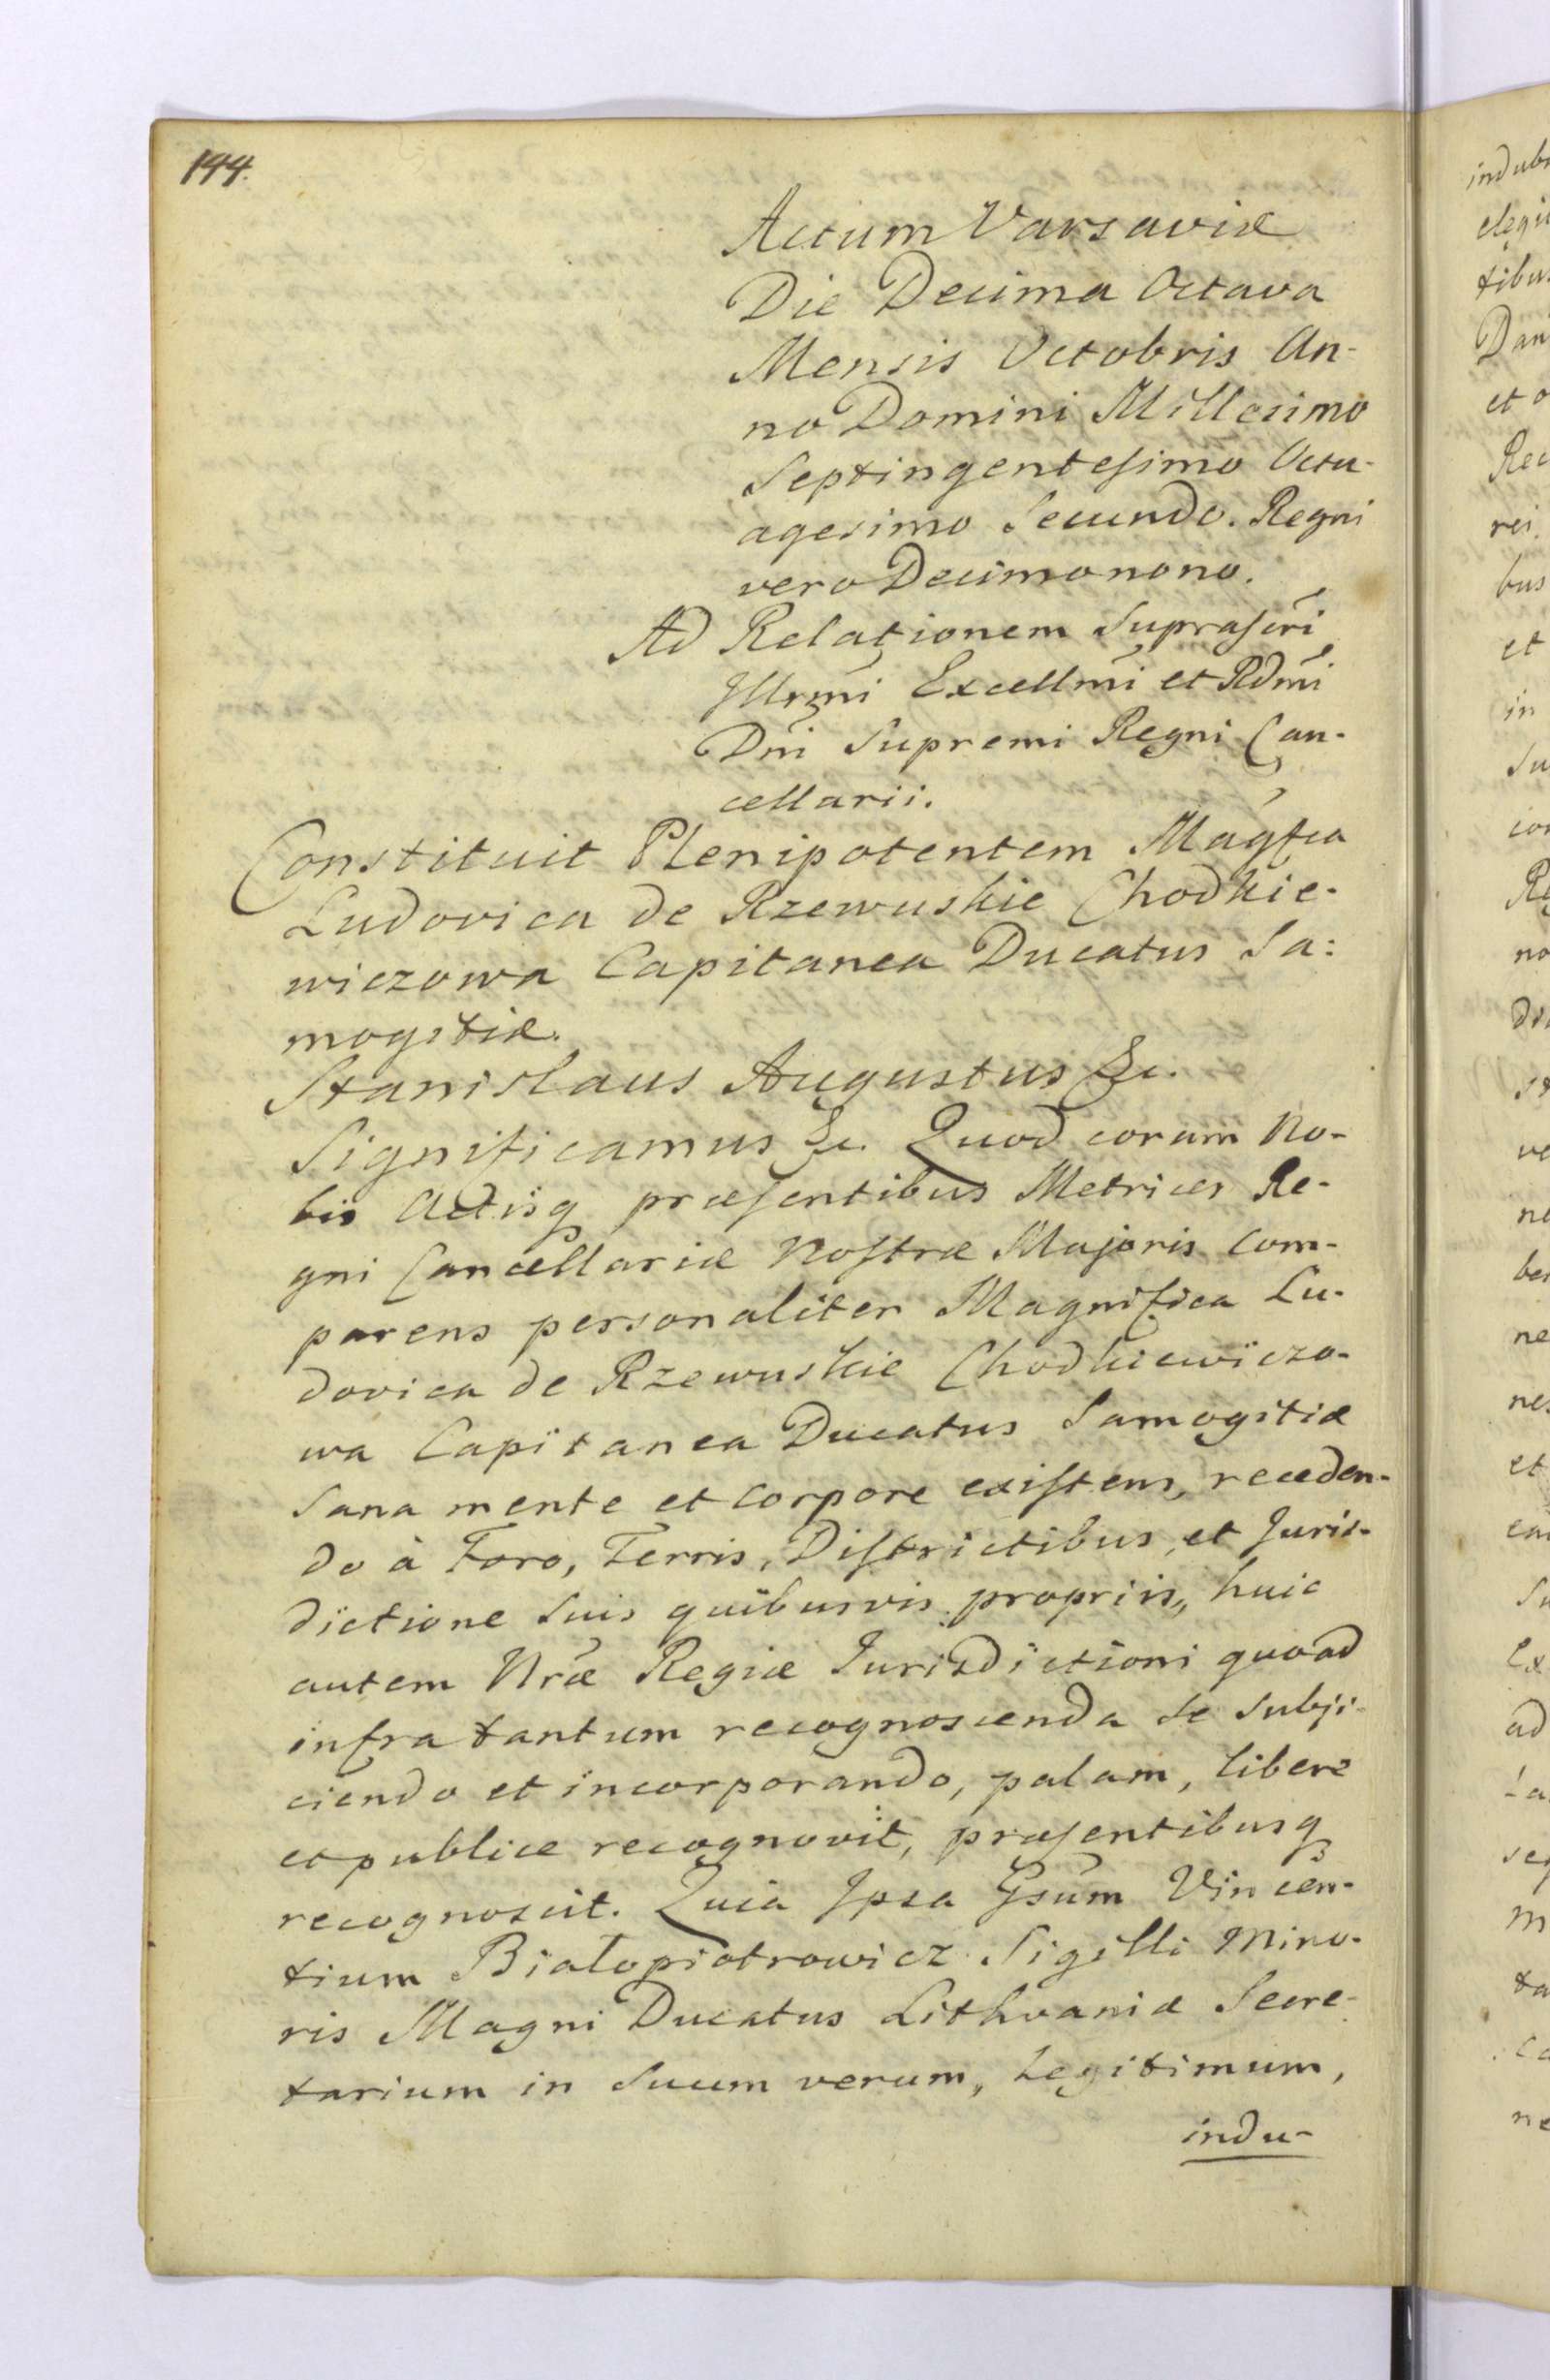 144.
Actum Varsaviæ
Die Decima Octava
Mensis Octobris An-
no Domini Millesimo
Septingentesimo Octu-
agesimo Secundo. Regni
vero Decimonono.
Ad Relationem Suprascri
Jllrmi Excellmi et Rdmi
Dni Supremi Regni Can-
cellarii.
Constituit Plenipotentem Magfca
Ludovica de Rzewuskie Chodkie-
wiczowa Capitanea Ducatus Sa:
mogitiæ.
Stanislaus Augustus &c.
Significamus &c. Quod coram No-
bis Actisq præsentibus Metrices Re-
gni Cancellariæ Nostræ Majoris Com-
parens personaliter Magnifica Lu-
dovica de Rzewuskie Chodkiewiczo-
wa Capitanea Ducatus Samogitiæ
Sana mente et Corpore existens, receden-
do à Foro, Terris, Districtibus, et Juris-
dictione Suis quibusvis propriis, huic
autem Nræ Regiæ Jurisdictioni quoad
infra tantum recognoscenda Se Subji-
ciendo et incorporando, palam, libere
et publice recognovit, præsentibusq
recognoscit. Quia Jpsa Gsum Vincen-
tium Białopiotrowicz Sigilli Mino-
ris Magni Ducatus Lithvaniæ Secre-
tarium in Suum verum, Legitimum,
indu-
indub
elegi
tibus
Dan
et o
Rec
rei
bus
et
in
Su
con
Re
no
ve
ne
ber
ne
nes
et
Su
Ex
ad
ta
ne